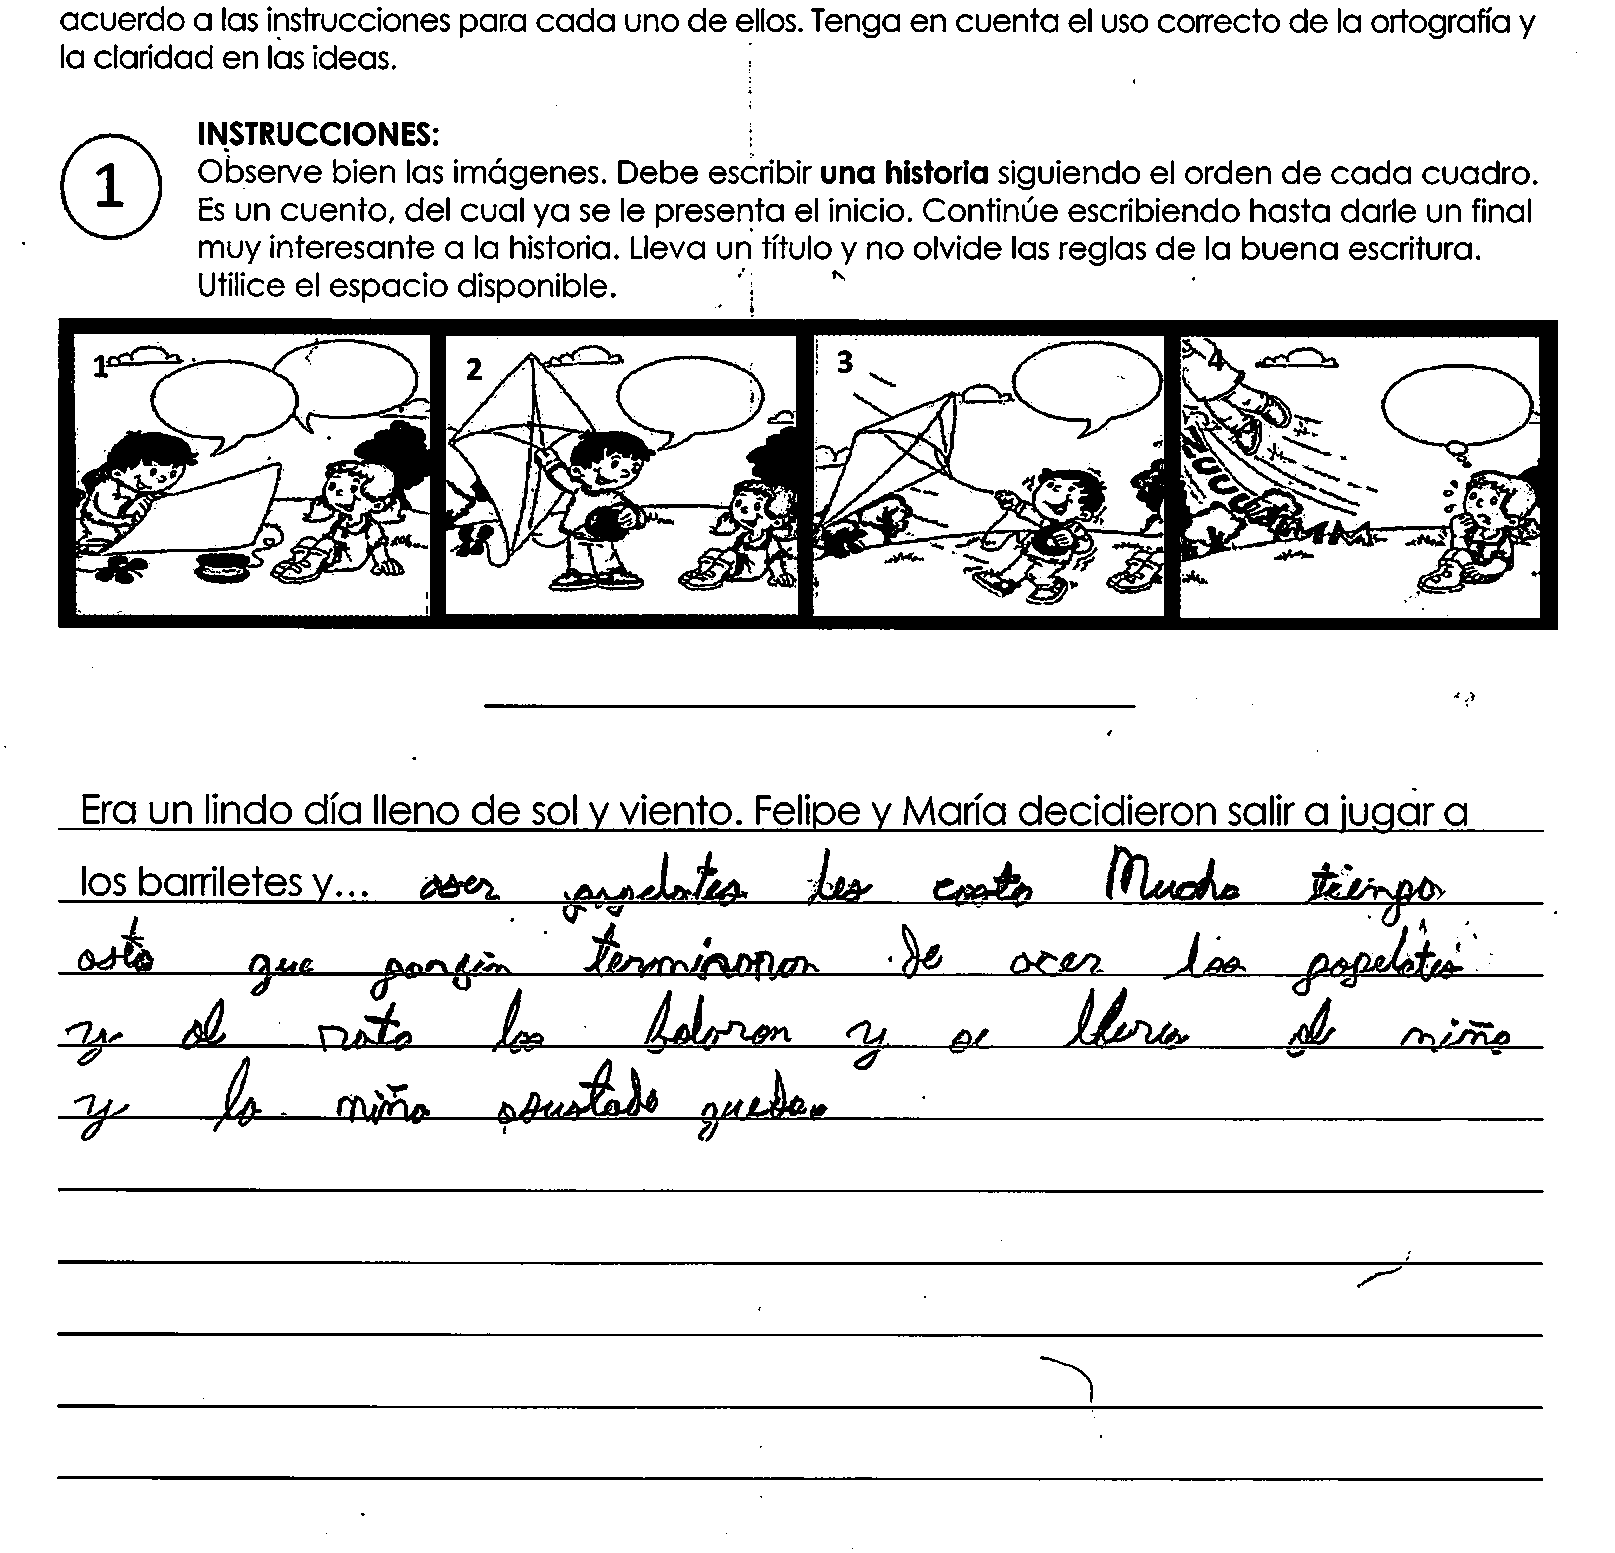 acuerdo a las instrucciones para cada uno de ellos. Tenga en cuenta el uso correcto de la ortografía y
la claridad en las ideas.
INSTRUCCIONES:
1
Observe bien las imágenes. Debe escribir una historia siguiendo el orden de cada cuadro.
Es un cuento, del cual ya se le presenta el inicio. Continúe escribiendo hasta darle un final
muy interesante a la historia. Lleva un título y no olvide las reglas de la buena escritura.
Utilice el espacio disponible.
1 2 3 4
Era un lindo día lleno de sol y viento. Felipe y María decidieron salir a jugar a
los barriletes y... aser papelotes les costo Mucho tiempo
asta que terminaron de acer los papelotes
y al rato los bolaron y se lleva al niño
y la niña asustada queda